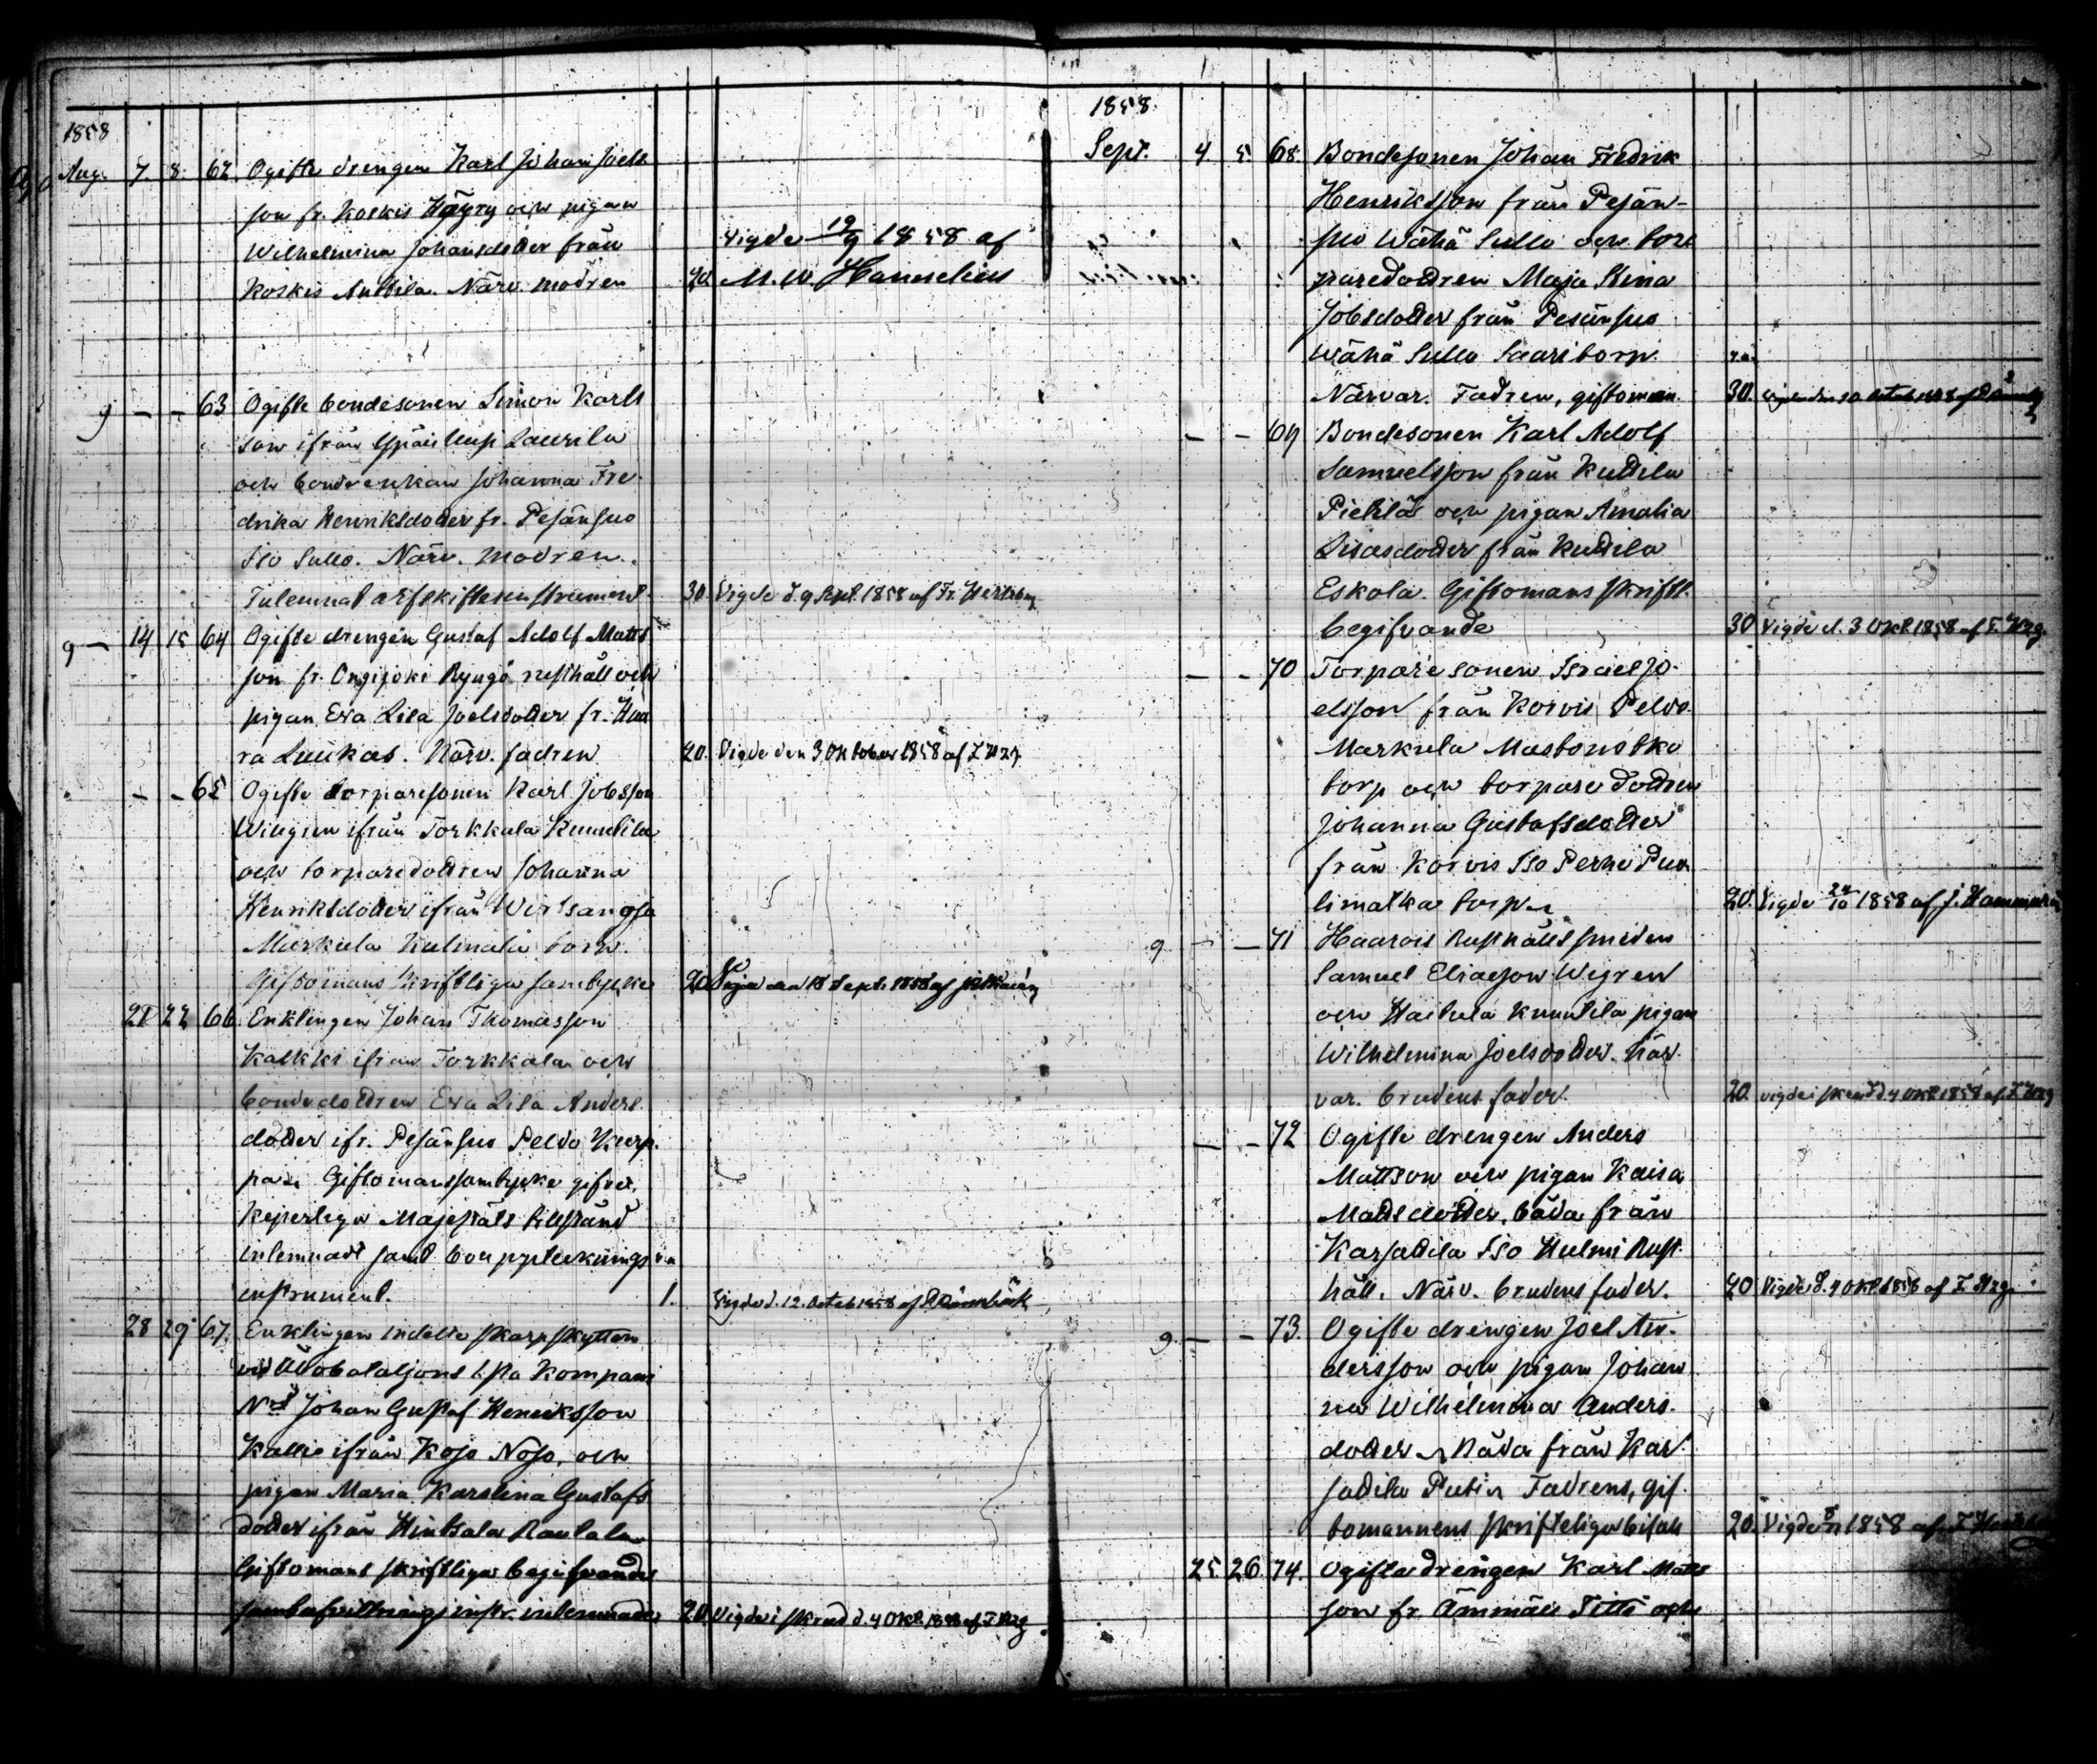 1858
Aug. 7. 8. 62 Ogifte drengen Karl Johan Joels
son fr. Koskis Häyry och pigan
Wilhelmina Johansdoter från
Koskis Anttila. Närv. modren
Vigde 19/9 1858 af
M. W. Hannelius
g — — 63 Ogifte bondesonen Simon Karls
son ifrån Laurila
och bondeenkan Johanna Fre
drika Henriksdoter fr. Pesänsuo
Iso Sullo. Närv. modren.
30. Vigde d. 9 Sept. 1858 af Fr. Hertzberg
g — 14 15 64 Ogifte drengen Gustaf Adolf Matts
son fr. Orisijoki rusthåll och
pigan Eva Lisa Joelsdoter fr. Haa
ra Luukas. Närv. fadren
20. Vigde den 3 Oktober 1858 af F Hzg.
— — 65 Ogifte torparesonen Karl Jobsson
Wingren ifrån Torkkala Knuutila
och torparedottren Johanna
Henriksdoter ifrån Wirtsanoja
Markula torp.
Giftomans skriftliga samtycke
20. Vigde den 18 Sept. 1858 af
21 22 66 Enklingen Johan Thomasson
Kalkki ifrån Torkkala och
bondedottren Eva Lisa Anders
doter ifr. Pesänsuo Peldo Kurp
pari Giftomanssamtycke gifvet,
Kejserliga Majestäts tillstånd
inlemnadt samt bouppteckningst
instrument.
1. Vigde d. 12. Octob 1858 af
28 29 67. Enklingen indelte skarpskytten
vid Åbo bataljons 1sta Kompani
Johan Gustaf Henriksson
Kallio ifrån Kojo Nojo, och
pigan Maria Karolina Gustafs
doter ifrån Hintsala Rautala
Giftomans skriftliga begifvande
samt afvittrings instr. inlemnades
20. Vigde i d. 4 Okt. 1858 af F Hzg
1858.
Sept. 4. 5. 68. Bondesonen Johan Fredrik
Henriksson från Pesän-
suo Wähä Sullo och tor
paredottren Maja Stina
Jobsdoter från Pesänsuo
Wähä Sullo Saari torp.
Närvar. Fadren, giftoman.
30. Vigde den 10 Octob 1858 af
— — 69 Bondesonen Karl Adolf
Samuelsson från Kuttila
Pietilä och pigan Amalia
Lisasdoter från Kuttila
Eskola. Giftomans skriftl.
begifvande
30 Vigde d. 3 Okt. 1858 af F. Hzg.
— — 70 Torparesonen Israel Jo-
elsson från Korvis Peldo
Markula
torp och torpare dottren
Johanna Gustafsdotter
från Korvis Iso Perho Puo
limatka torp
20. Vigde 24/10 1858 af J. Hammarén
g — — 71 Haarois Rusthålls smeden
Samuel Eliasson Wegren
och Haihula Knuutila pigan
Wilhelmina Joelsdotter. När
var. brudens fader.
20. vigde i d. 4 Okt 1858 af F Hzg
— — 72 Ogifte drengen Anders
Mattsson och pigan Kaisa
Mattsdotter, båda från
Karsattila Iso Hulmi Rust
håll. Närv. brudens fader.
20 Vigde d. 4 Okt 1858 af F. Hzg.
g — — 73. Ogifte drengen Joel An-
dersson och pigan Johan
na Wilhelmina Anders-
doter Båda från Kar
sattila Putin Fadrens, gif-
tomannens skrifteliga bifall
20. Vigde 1858 af F.
25 26 74. Ogifta drengen Karl Matts
son fr. Ämmäis Titti och